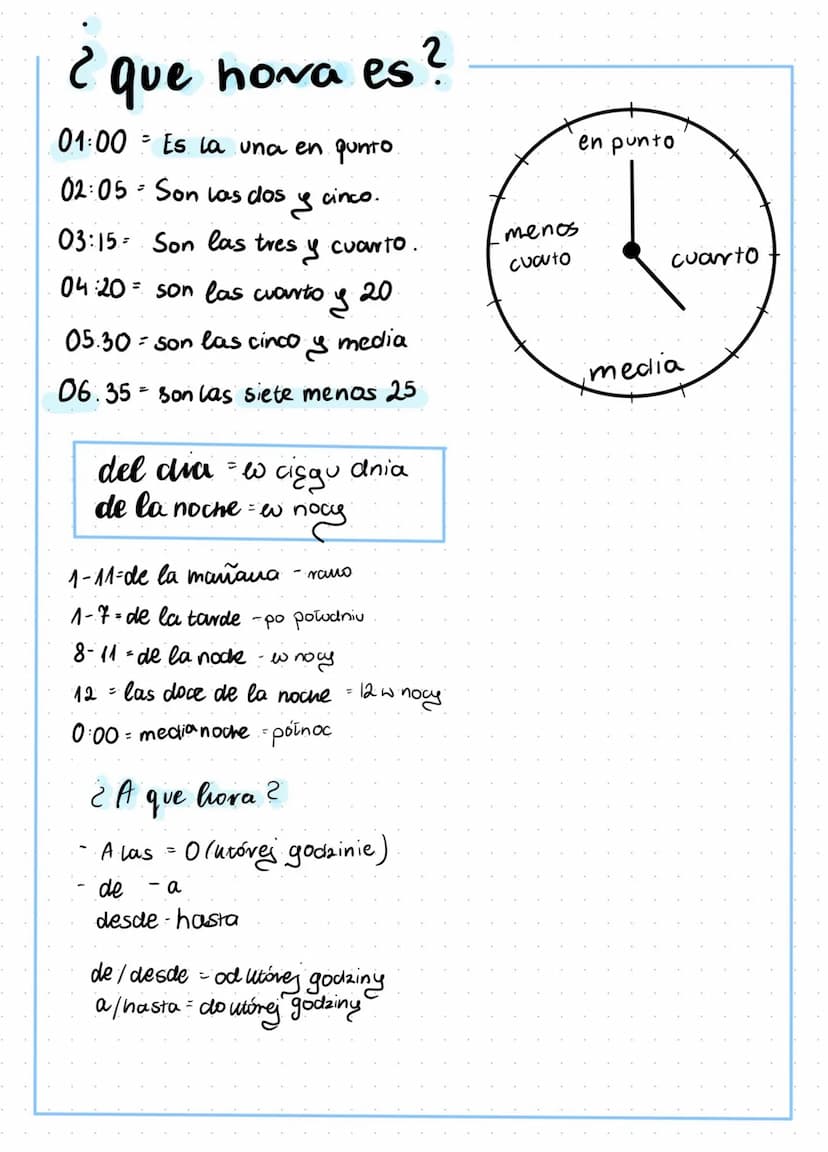 ¿ que hora es?
01:00 = Es la una en punto
02:05 = Son las dos y cinco.
03:15 = Son las tres y cuarto.
04:20 = son las cuarto y 20
05.30 = son las cinco y media
06.35 = son las siete menos 25
en punto
menos
cuarto
cuarto
media
del dia = w ciągu dnia
de la noche = w nocy
1-11=de la mañana - rano
1-7 = de la tarde - po południu
8-11 = de la noche - w nocy
12 = las doce de la noche = 12 w nocy
0:00 = medianoche = północ
¿ A que hora ?
- A las = O (której godzinie)
- de - a
desde - hasta
de / desde = od której godziny
a/hasta = do której godziny